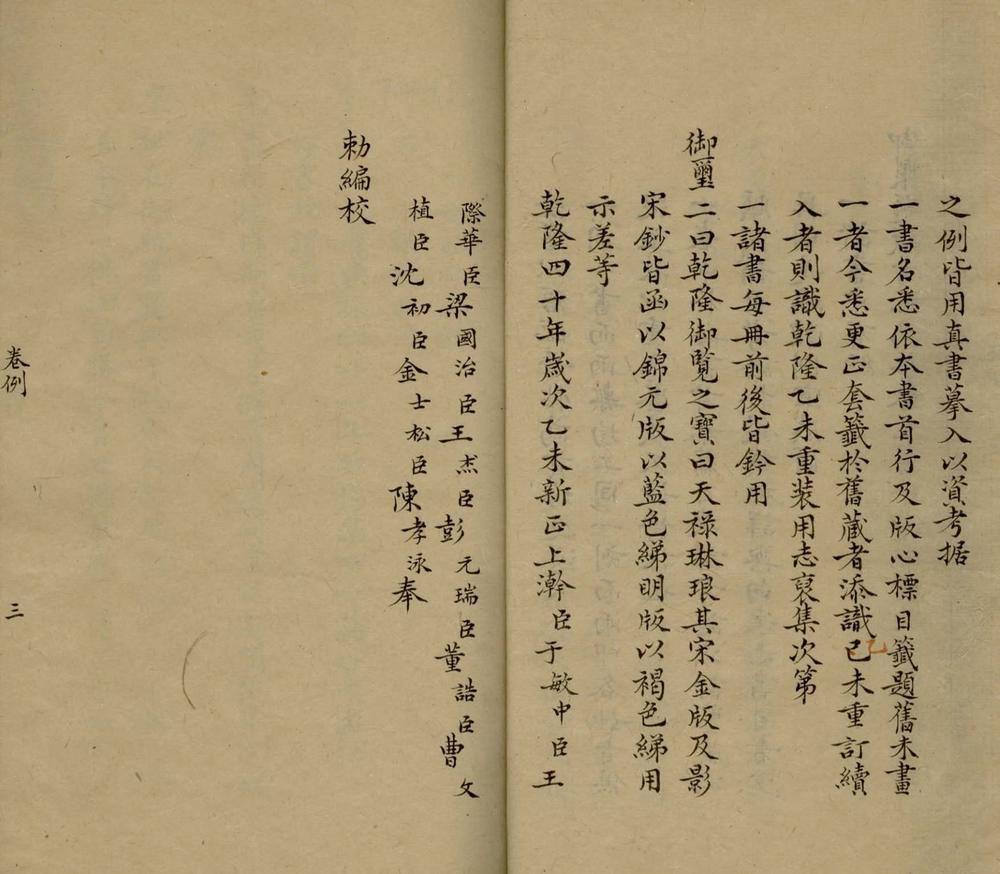 之例皆用真書摹入以資考据
一書名悉依本書首行及版心標目籤題舊未畫
一者今悉更正套籤於舊藏者添識已未重訂續
乙
入者則識乾隆乙未重裝用志裒集次第
一諸書每冊前後皆鈐用
御璽二曰乾隆御覽之寶曰天祿琳琅其宋金版及影
宋鈔皆函以錦元版以藍色綈明版以褐色綈用
示差等
乾隆四十年歲次乙未新正上澣臣于敏中臣王
際華臣梁國治臣王杰臣彭元瑞臣董誥臣曹文
植臣沈初臣金士松臣陳孝泳奉
勅編校
卷例
三